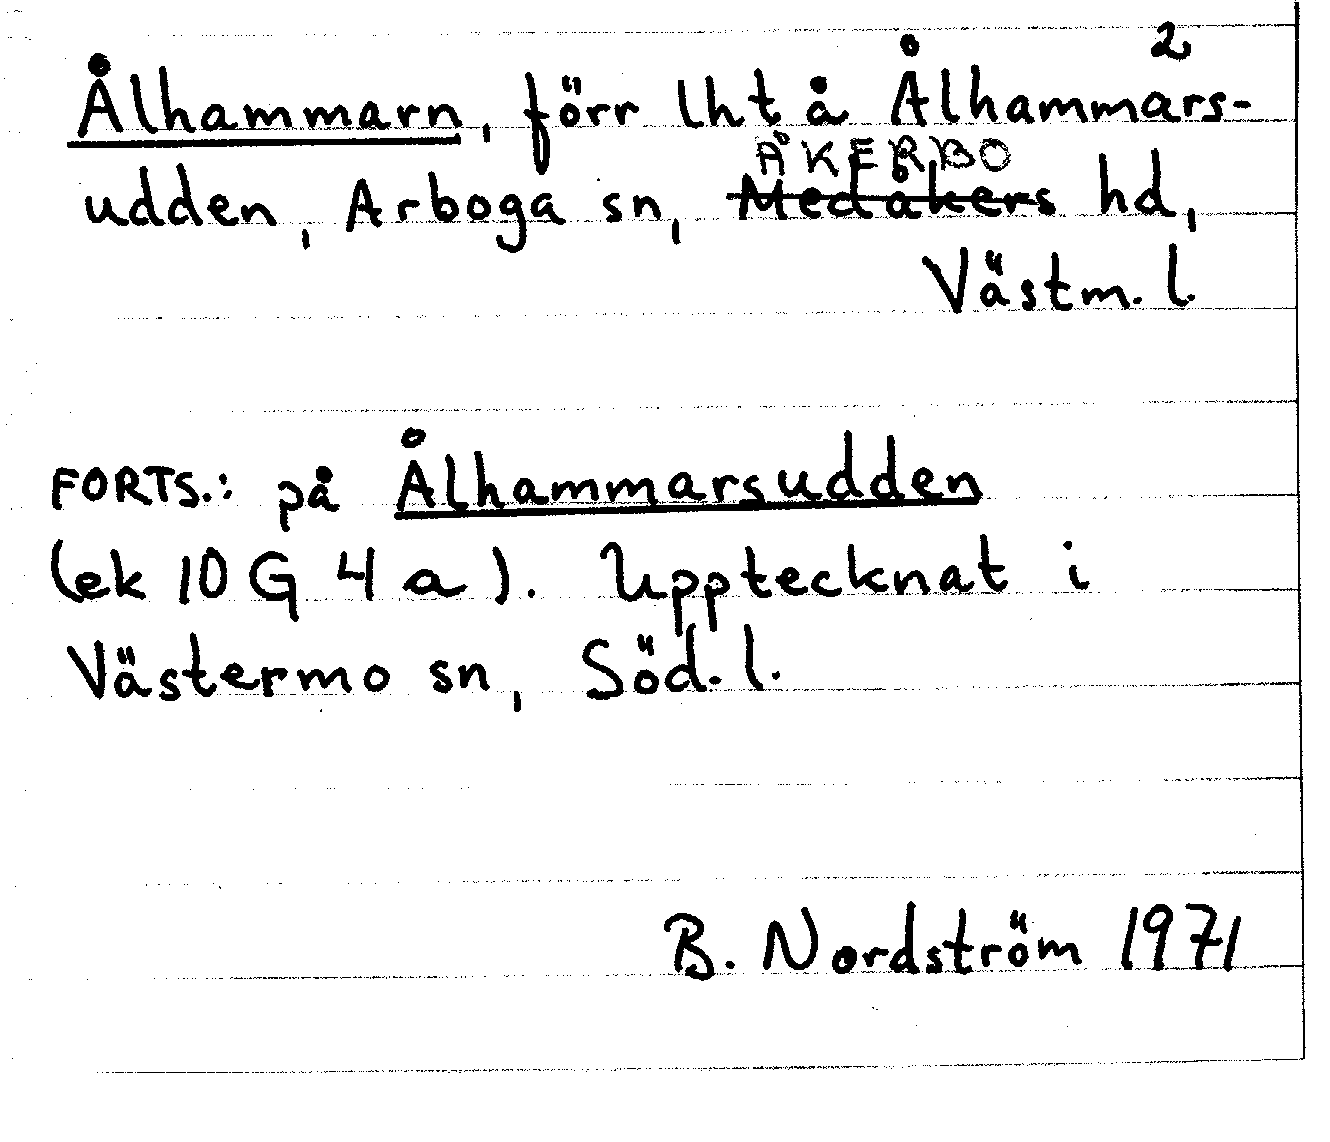 2
Ålhammarn, förr lht å Ålhammars-
ÅKERBO
udden, Arboga sn, Medåkers hd,
Västm. l.
FORTS.: på Ålhammarsudden
(ek 10 G 4 a). Upptecknat i
Västermo sn, Söd. l.
B. Nordström 1971